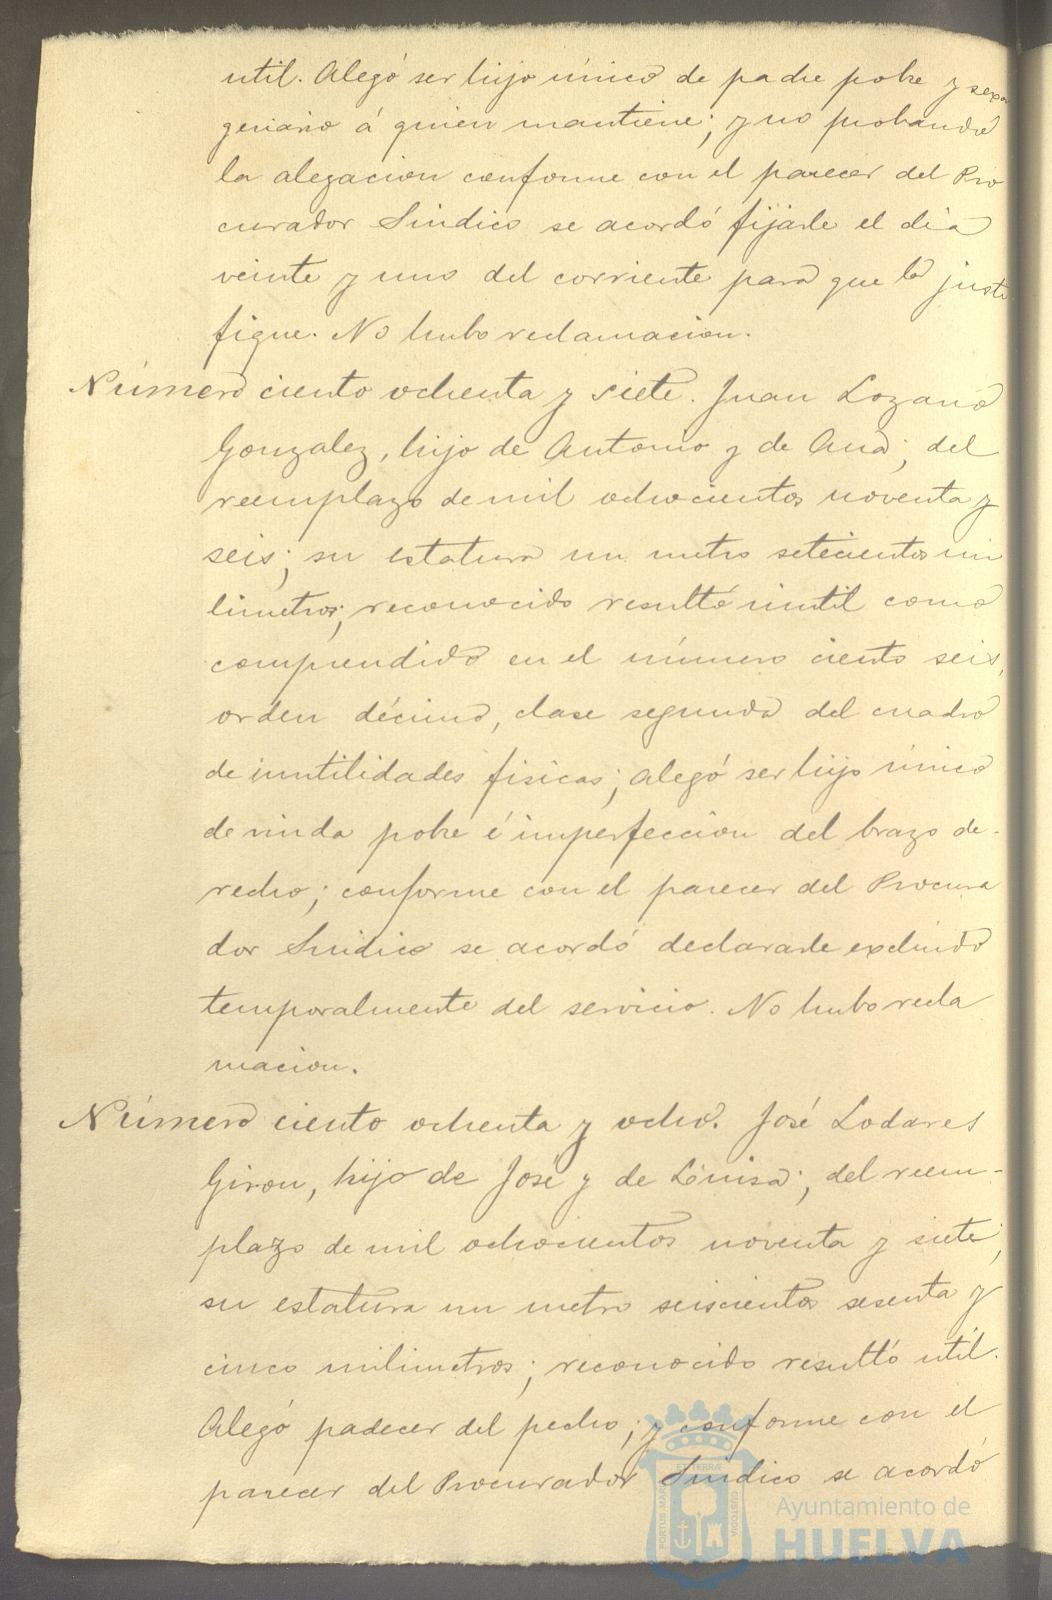 util. Alegó ser hijo único de padre pobre y sexa
genario á quien mantiene; y no probando
la alegacion conforme con el parecer del Pro
curador Sindico se acordó fijarle el dia
veinte y uno del corriente para que la justi
fique. No hubo reclamacion.
Número ciento ochenta y siete. Juan Lozano
Gonzalez, hijo de Antonio y de Ana; del
reemplazo de mil ochocientos noventa y
seis; su estatura un metro setecientos mi
limetros; reconocido resultó inutil como
comprendido en el número ciento seis,
orden décimo, clase segunda del cuadro
de inutilidades fisicas; alegó ser hijo único
de viuda pobre é imperfeccion del brazo de-
recho; conforme con el parecer del Procura
dor Sindico se acordó declararle excluido
temporalmente del servicio. No hubo recla
macion.
Número ciento ochenta y ocho. José Lodares
Giron, hijo de José y de Luisa; del reem-
plazo de mil ochocientos noventa y siete;
su estatura un metro seiscientos sesenta y
cinco milimetros; reconocido resultó util.
Alegó padecer del pecho; y conforme con el
parecer del Procurador Sindico se acordó
PORTUS MARIS ET TERRAE CUSTODIA
Ayuntamiento de
HUELVA